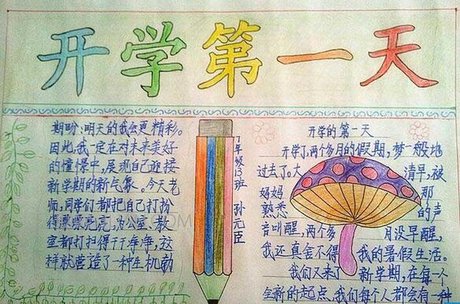 开学第一天
期盼,明天的我会更精彩。
因此,我一定在对未来美好
的憧憬中,展现自己迎接
新学期的新气象。今天老
师,同学们都把自己打扮
得漂漂亮亮,办公室、教
室都打扫得干干净净,这
样就营造了一种生机勃
七年级13班 孙元臣
开学的第一天
开学了,两个多月的假期,梦一般地
过去了。大清早,被
妈妈那
熟悉的声
音叫醒,两个多月没早醒,
我还真舍不得我的暑假生活。
我们又来了新学期,在每一个
全新的起点,我们每个人都会有一种